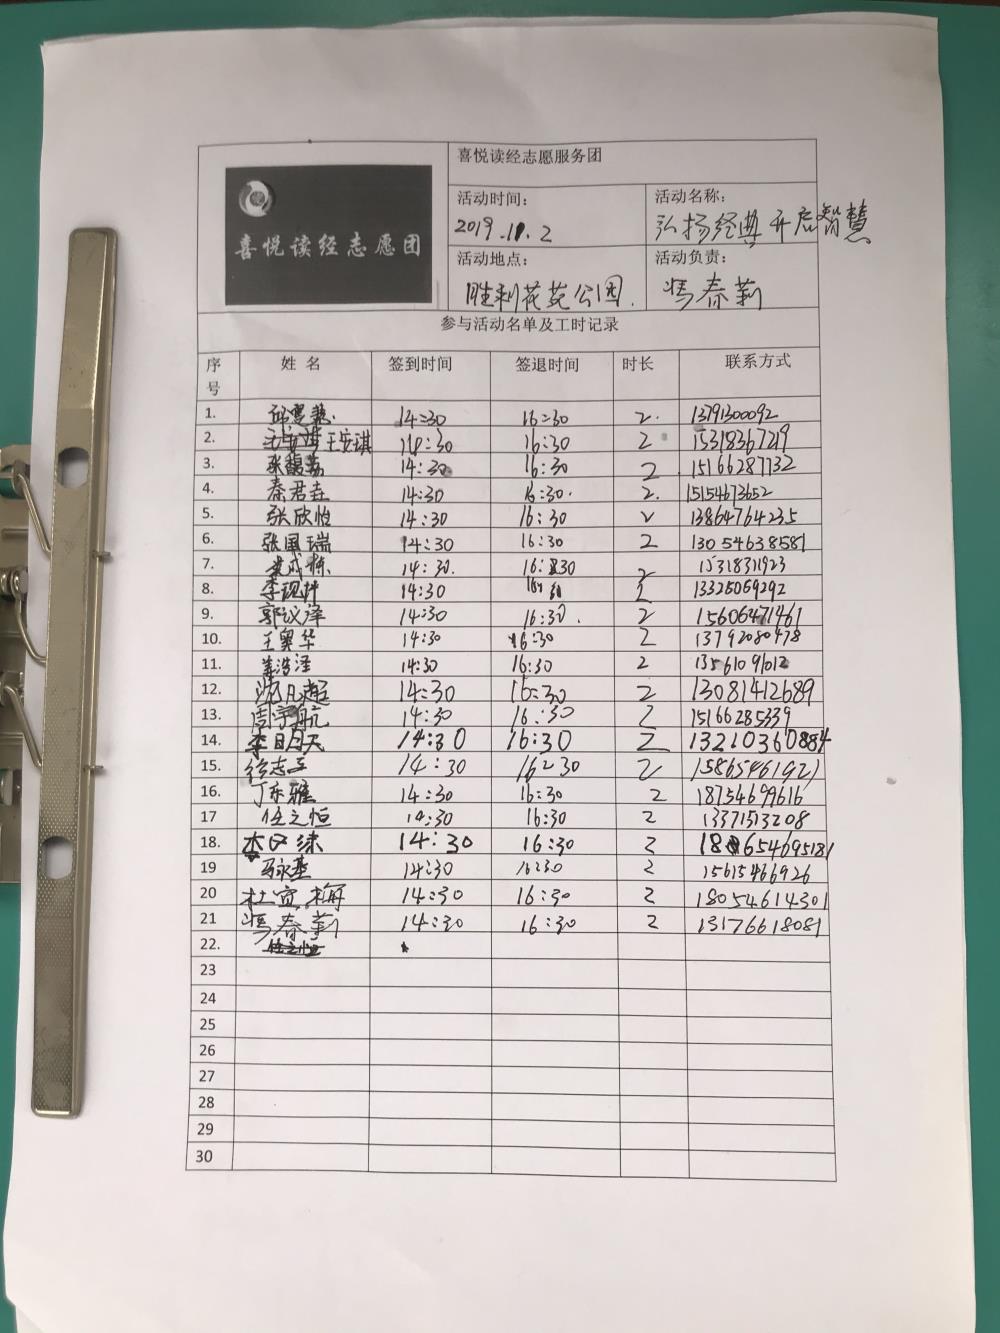 喜悦读经志愿团
喜悦读经志愿服务团
活动时间: 活动名称:
2019.11.2 弘扬经典开启智慧
活动地点: 活动负责:
胜利花苑公园. 冯春莉
参与活动名单及工时记录
序号 姓 名 签到时间 签退时间 时长 联系方式
1. 14:30 16:30 2. 13791300092
2. 王安琪 14:30 16:30 2 15318367219
3. 张馥荔 14:30 16:30 2 15166287732
4. 秦君垚 14:30 16:30. 2. 15154673652
5. 张欣怡 14:30 16:30 2 13864764235
6. 张国瑞 14:30 16:30 2 13054638581
7. 14:30. 16:30 2 15318311923
8. 14:30 2 13325059292
9. 郭议泽 14:30 16:30. 2 15606471461
10. 王奥华 14:30 16:30 2 13792080478
11. 姜浩泽 14:30 16:30 2 13561091012
12. 沈凡超 14:30 16:30 2 13081412689
13. 周宇航 14:30 16:30 2 15166285339
14. 李明天 14:30 16:30 2 13210360884
15. 14:30 16:30 2 15865461921
16. 丁亦雅 14:30 16:30 2 18754699616
17 任之恒 14:30 16:30 2 13371513208
18. 14:30 16:30 2 18654695181
19 马永基 14:30 16:30 2 15615466926
20 杜宜梅 14:30 16:30 2 18054614301
21 冯春莉 14:30 16:30 2 13176618081
22. 任之恒
23
24
25
26
27
28
29
30